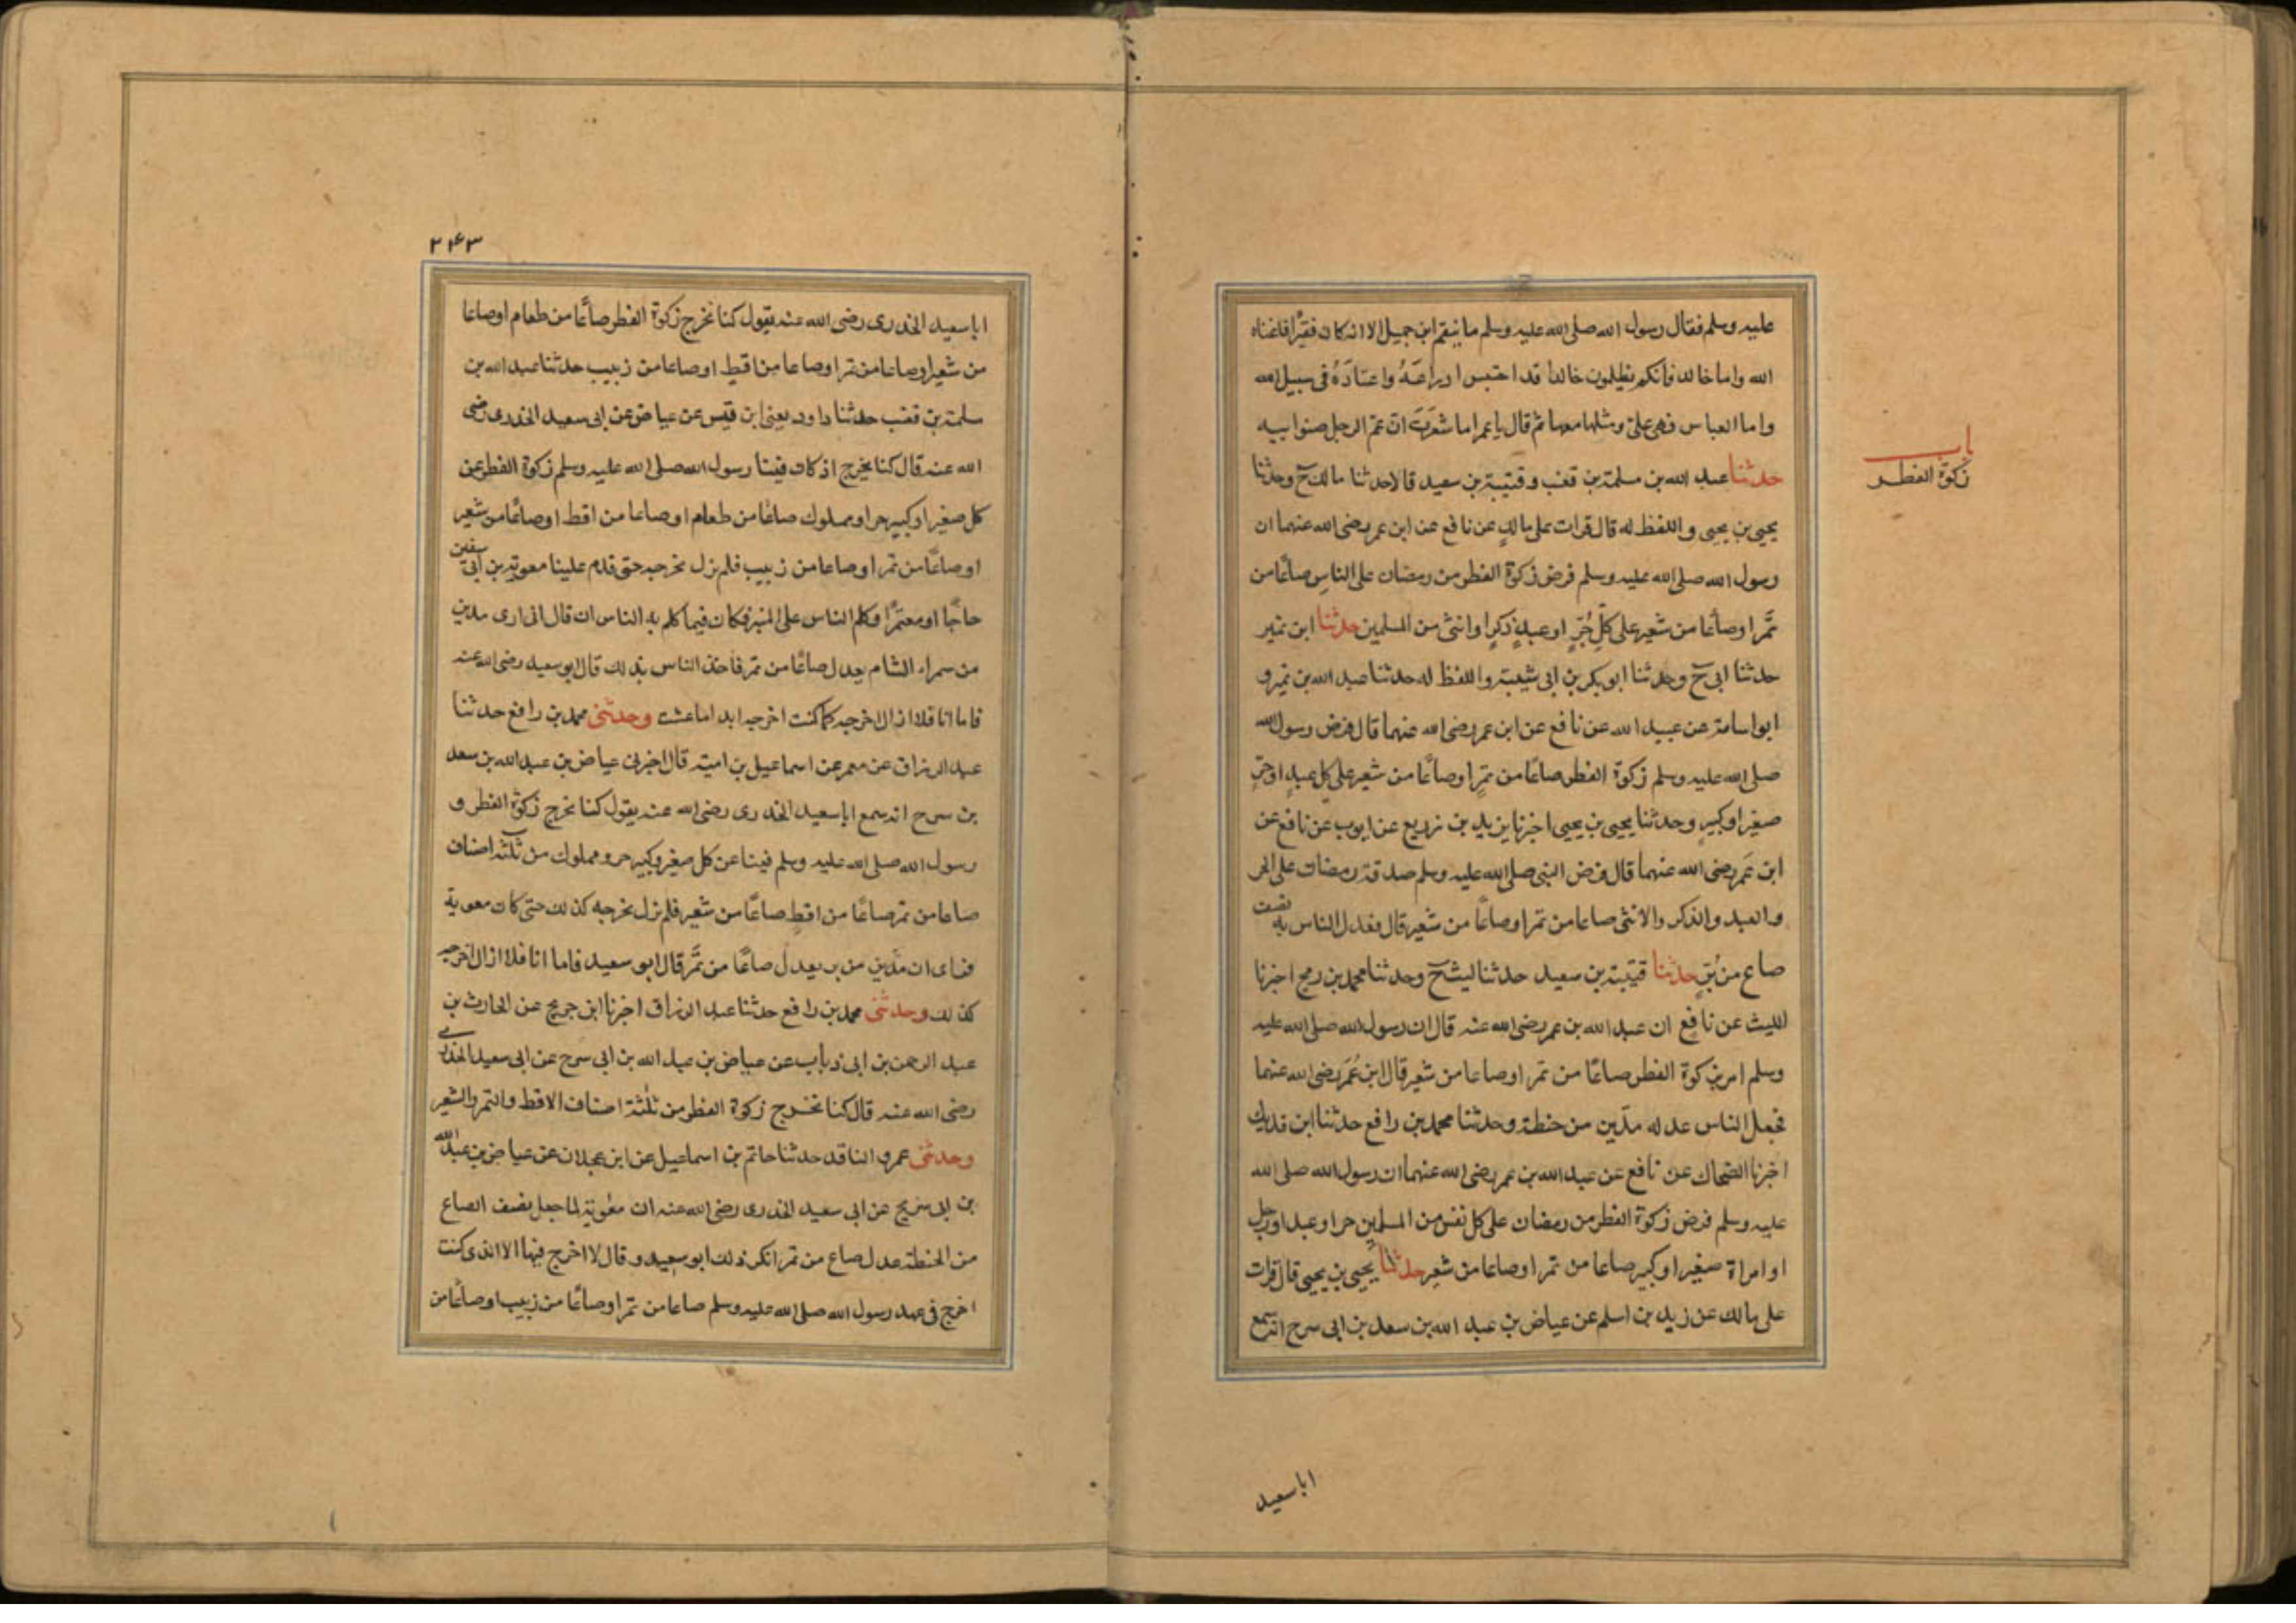 عليه وسلم فقال رسول الله صلى الله عليه وسلم ما ينقم ابن جميل الا انه كان فقيرًا فاغناه
الله واما خالد فانكم تظلمون خالدا قد احتبس ادراعَهُ واعتادَهُ فى سبيل الله
واما العباس فهى علىّ ومثلها معها ثم قال يا عمر اما شعَرتَ انّ عمّ الرجل صنو ابيه
باب
زكوة الفطر
حدثنا عبد الله بن مسلمة بن قعنب وقتيبة بن سعيد قالا حدثنا مالك ح وحدثنا
يحيى بن يحيى واللفظ له قال قرات على مالكٍ عن نافع عن ابن عمر رضى الله عنهما ان
رسول الله صلى الله عليه وسلم فرض زكوة الفطر من رمضان على الناسِ صاعًا من
تمر اوصاعًا من شعير على كلّ حُرٍّ او عبدٍ ذكرٍ او انثى من المسلمين حدثنا ابن نمير
حدثنا ابى ح وحدثنا ابو بكر بن ابى شيبة واللفظ له حدثنا عبد الله بن نمير و
ابو اسامة عن عبيد الله عن نافع عن ابن عمر رضى الله عنهما قال فرض رسول الله
صلى الله عليه وسلم زكوة الفطر صاعًا من تمرٍ اوصاعًا من شعير على كل عبدٍ او حرٍّ
صغير او كبيرٍ وحدثنا يحيى بن يحيى اخبرنا يزيد بن زريع عن ايوب عن نافع عن
ابن عمَر رضى الله عنهما قال فرض النبى صلى الله عليه وسلم صدقة رمضان على الحر
والعبد والذكر والانثى صاعا من تمر اوصاعًا من شعير قال فعدل الناس به نصف
صاع من بُرٍّ حدثنا قتيبة بن سعيد حدثنا ليث ح وحدثنا محمد بن رمح اخبرنا
الليث عن نافع ان عبد الله بن عمر رضى الله عنه قال ان رسول الله صلى الله عليه
وسلم امر بزكوة الفطر صاعًا من تمر اوصاعا من شعير قال ابن عُمَر رضى الله عنهما
فجعل الناس عدله مدّين من حنطة وحدثنا محمد بن رافع حدثنا ابن فديك
اخبرنا الضحاك عن نافع عن عبد الله بن عمر رضى الله عنهما ان رسول الله صلى الله
عليه وسلم فرض زكوة الفطر من رمضان على كل نفس من المسلمين حر او عبد او رجل
او امراة صغير او كبير صاعا من تمر اوصاعا من شعير حدثنا يحيى بن يحيى قال قرات
على مالك عن زيد بن اسلم عن عياض بن عبد الله بن سعد بن ابى سرح انه سمع
اباسعيد
٢٤٣
اباسعيد الخدرى رضى الله عنه يقول كنا نخرج زكوة الفطر صاعًا من طعام اوصاعا
من شعير اوصاعا من تمر اوصاعا من اقطٍ اوصاعا من زبيب حدثنا عبد الله بن
سلمة بن قعنب حدثنا داود يعنى ابن قيس عن عياض عن ابى سعيد الخدرى رضى
الله عنه قال كنا نخرج اذ كان فينا رسول الله صلى الله عليه وسلم زكوة الفطر عن
كل صغير او كبير حر او مملوك صاعًا من طعام اوصاعا من اقط اوصاعًا من شعير
اوصاعًا من تمر اوصاعا من زبيب فلم نزل نخرجه حتى قدم علينا معوية بن ابى سفين
حاجًا او معتمرًا فكلم الناس على المنبر فكان فيما كلم به الناس ان قال انى ارى مدين
من سمراء الشام يعدل صاعًا من تمر فاخذ الناس بذلك قال ابو سعيد رضى الله عنه
فاما انا فلا ازال اخرجه كما كنت اخرجه ابدا ما عشت وحدثنى محمد بن رافع حدثنا
عبد الرزاق عن معمر عن اسماعيل بن امية قال اخبرنى عياض بن عبد الله بن سعد
بن سرح انه سمع اباسعيد الخدرى رضى الله عنه يقول كنا نخرج زكوة الفطر و
رسول الله صلى الله عليه وسلم فينا عن كل صغير وكبير حر ومملوك من ثلثة اصناف
صاعا من تمر صاعًا من اقطٍ صاعًا من شعير فلم نزل نخرجه كذلك حتى كان معوية
فراى ان مدّين من بر يعدل صاعًا من تمر قال ابو سعيد فاما انا فلا ازال اخرجه
كذلك وحدثنى محمد بن رافع حدثنا عبد الرزاق اخبرنا ابن جريج عن الحارث بن
عبد الرحمن بن ابى ذباب عن عياض بن عبد الله بن ابى سرح عن ابى سعيد الخدرى
رضى الله عنه قال كنا نخرج زكوة الفطر من ثلثة اصناف الاقط والتمر والشعير
وحدثنى عمرو الناقد حدثنا حاتم بن اسماعيل عن ابن عجلان عن عياض بن عبد الله
بن ابى سريح عن ابى سعيد الخدرى رضى الله عنه ان معوية لما جعل نصف الصاع
من الحنطة عدل صاع من تمر انكر ذلك ابو سعيد وقال لا اخرج فيها الا الذى كنت
اخرج فى عهد رسول الله صلى الله عليه وسلم صاعا من تمر اوصاعًا من زبيب اوصاعًا من